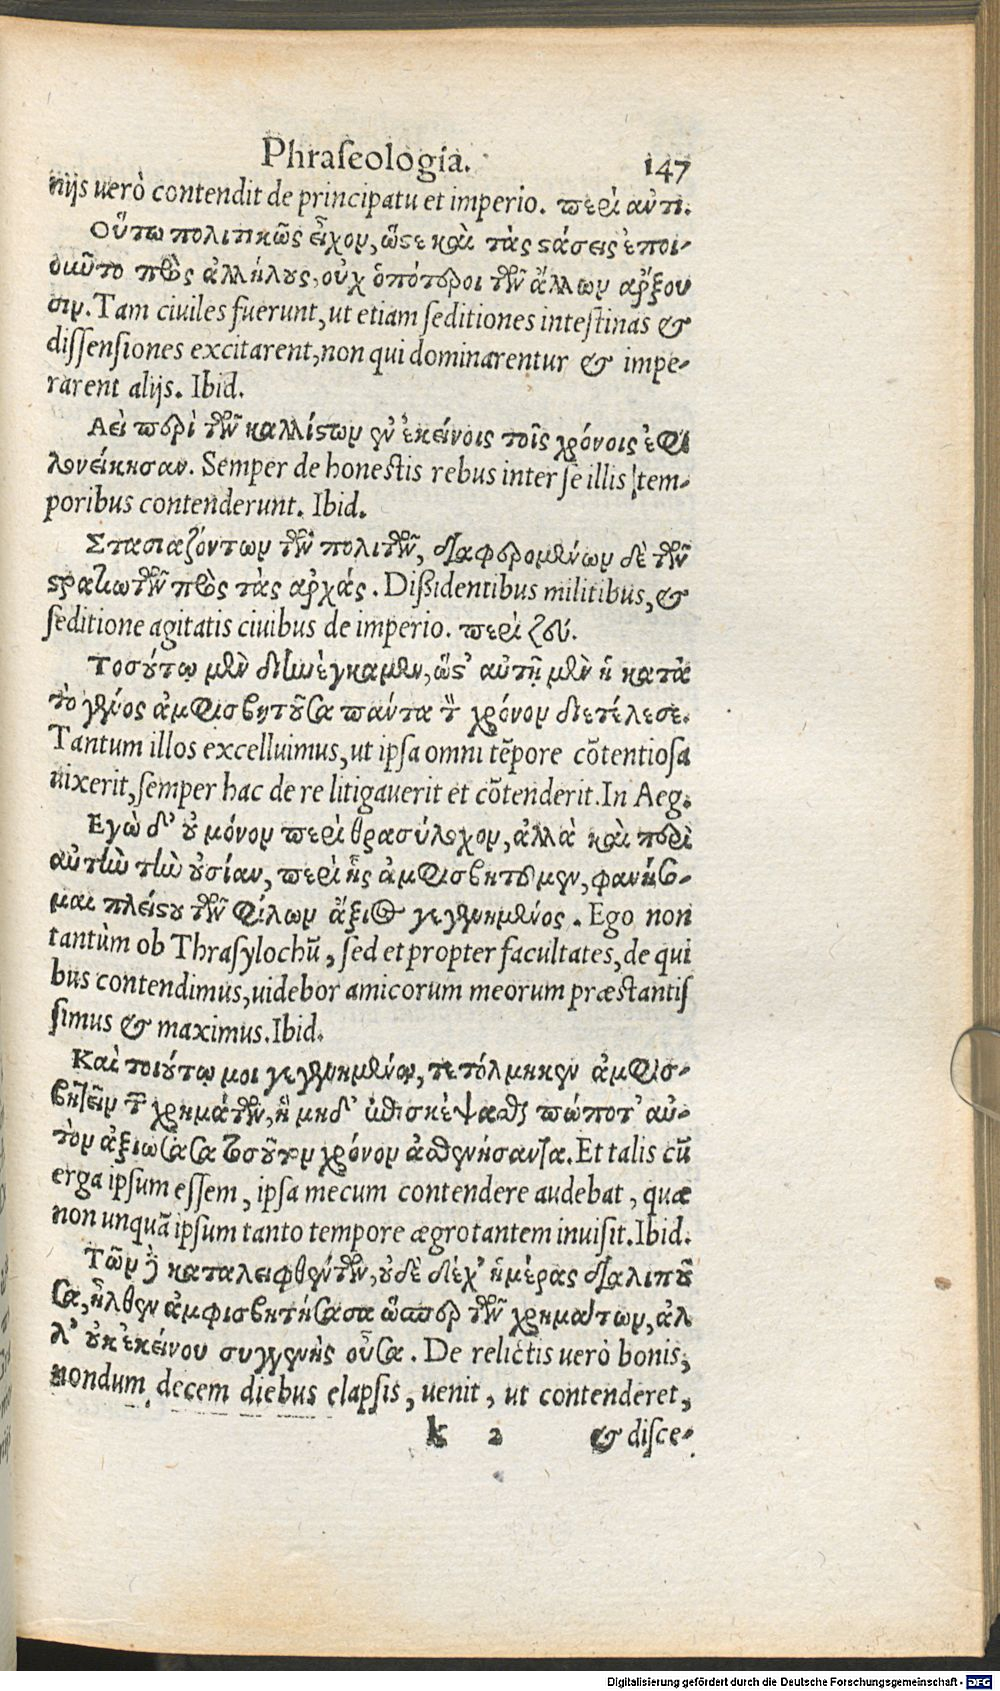 Phraseologia. 147
nijs uerò contendit de principatu et imperio. περὶ αὐτι.
Οὕτω πολιτικῶς εἶχον, ὥστε καὶ τὰς στάσεις ἐποι-
οιοῦντο πρὸς ἀλλήλους, οὐχ ὁπότεροι τῶν ἄλλων ἄρξου
σιν. Tam ciuiles fuerunt, ut etiam seditiones intestinas &
dissensiones excitarent, non qui dominarentur & impe-
rarent alijs. Ibid.
Αεὶ περὶ τῶν καλλίστων ἐν ἐκείνοις τοῖς χρόνοις ἐφι
λονείκησαν. Semper de honestis rebus inter se illis tem-
poribus contenderunt. Ibid.
Στασιαζόντων τῶν πολιτῶν, διαφερομένων δὲ τῶν
στρατιωτῶν πρὸς τὰς ἀρχάς. Dißidentibus militibus, &
seditione agitatis ciuibus de imperio. περὶ ζευ.
Τοσούτῳ μὲν διηνέγκαμεν, ὥστ' αὐτῇ μὲν ἡ κατὰ
τὸ γένος ἀμφισβητοῦσα πάντα τὸν χρόνον διετέλεσε.
Tantum illos excelluimus, ut ipsa omni tẽpore cõtentiosa
uixerit, semper hac de re litigauerit et cõtenderit. In Aeg.
Εγὼ δ' οὐ μόνον περὶ θρασύλοχον, ἀλλὰ καὶ περὶ
αὐτὴν τὴν οὐσίαν, περὶ ἧς ἀμφισβητοῦμεν, φανήσο-
μαι πλείστου τῶν φίλων ἄξιος γεγενημένος. Ego non
tantùm ob Thrasylochũ, sed et propter facultates, de qui
bus contendimus, uidebor amicorum meorum præstantis
simus & maximus. Ibid.
Καὶ τοιούτῳ μοι γεγενημένῳ, τετόλμηκεν ἀμφισ-
βητεῖν τῶν χρημάτων, ἣ μηδ' ἐπισκέψασθαι πώποτ' αὐ-
τὸν ἀξιώσασα τοσοῦτον χρόνον ἀσθενήσαντα. Et talis cũ
erga ipsum essem, ipsa mecum contendere audebat, quæ
non unquã ipsum tanto tempore ægrotantem inuisit. Ibid.
Τῶν δὲ καταλειφθέντων, οὐδὲ δέχ' ἡμέρας διαλιποῦ
σα, ἦλθεν ἀμφισβητήσασα ὥσπερ τῶν χρημάτων, ἀλ
λ' οὐκ ἐκείνου συγγενὴς οὖσα. De relictis uerò bonis,
nondum decem diebus elapsis, uenit, ut contenderet,
k 2 & disce-
Digitalisierung gefördert durch die Deutsche Forschungsgemeinschaft - DFG